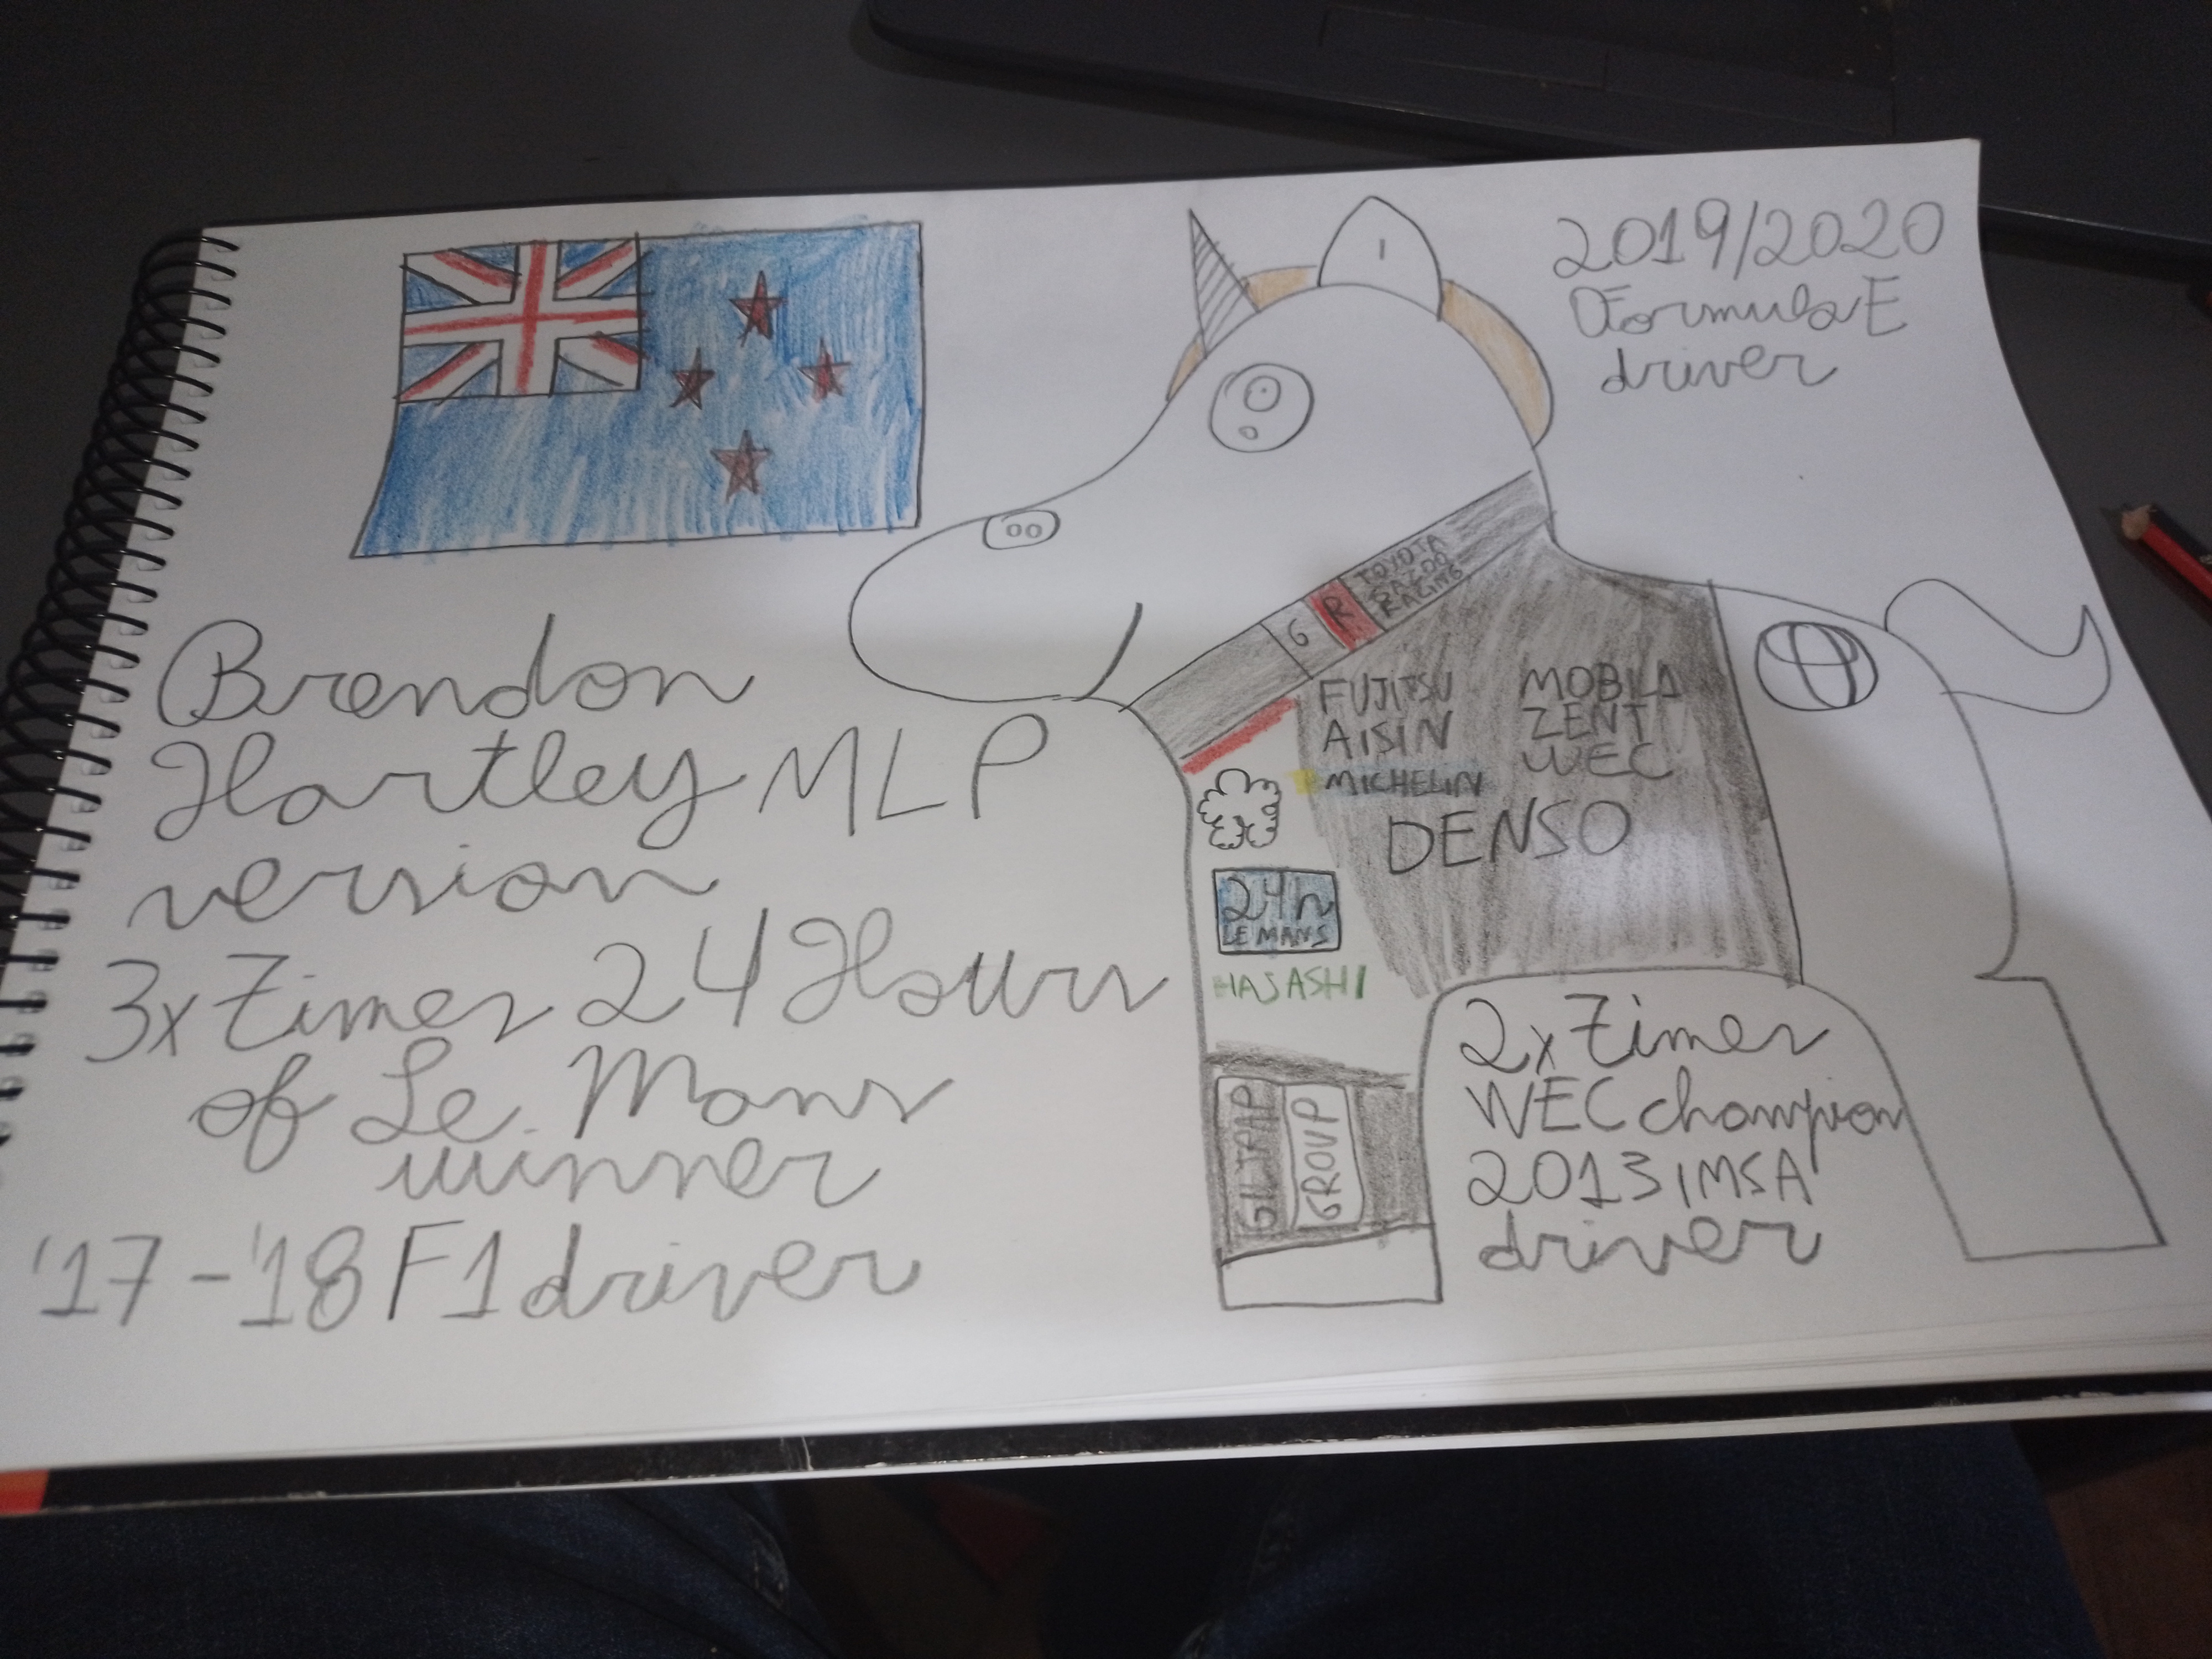 2019/2020
Formula E
driver
G R TOYOTA
GAZOO
RACING
FUJITSU
AISIN
MICHELIN
MOBIL1
ZENT
WEC
DENSO
24h
LE MANS
HAJASHI
GILTRAP
GROUP
Brendon
Hartley MLP
version
3x Times 24 Hours
of Le Mans
winner
'17-'18 F1 driver
2x Times
WEC champion
2013 IMSA
driver